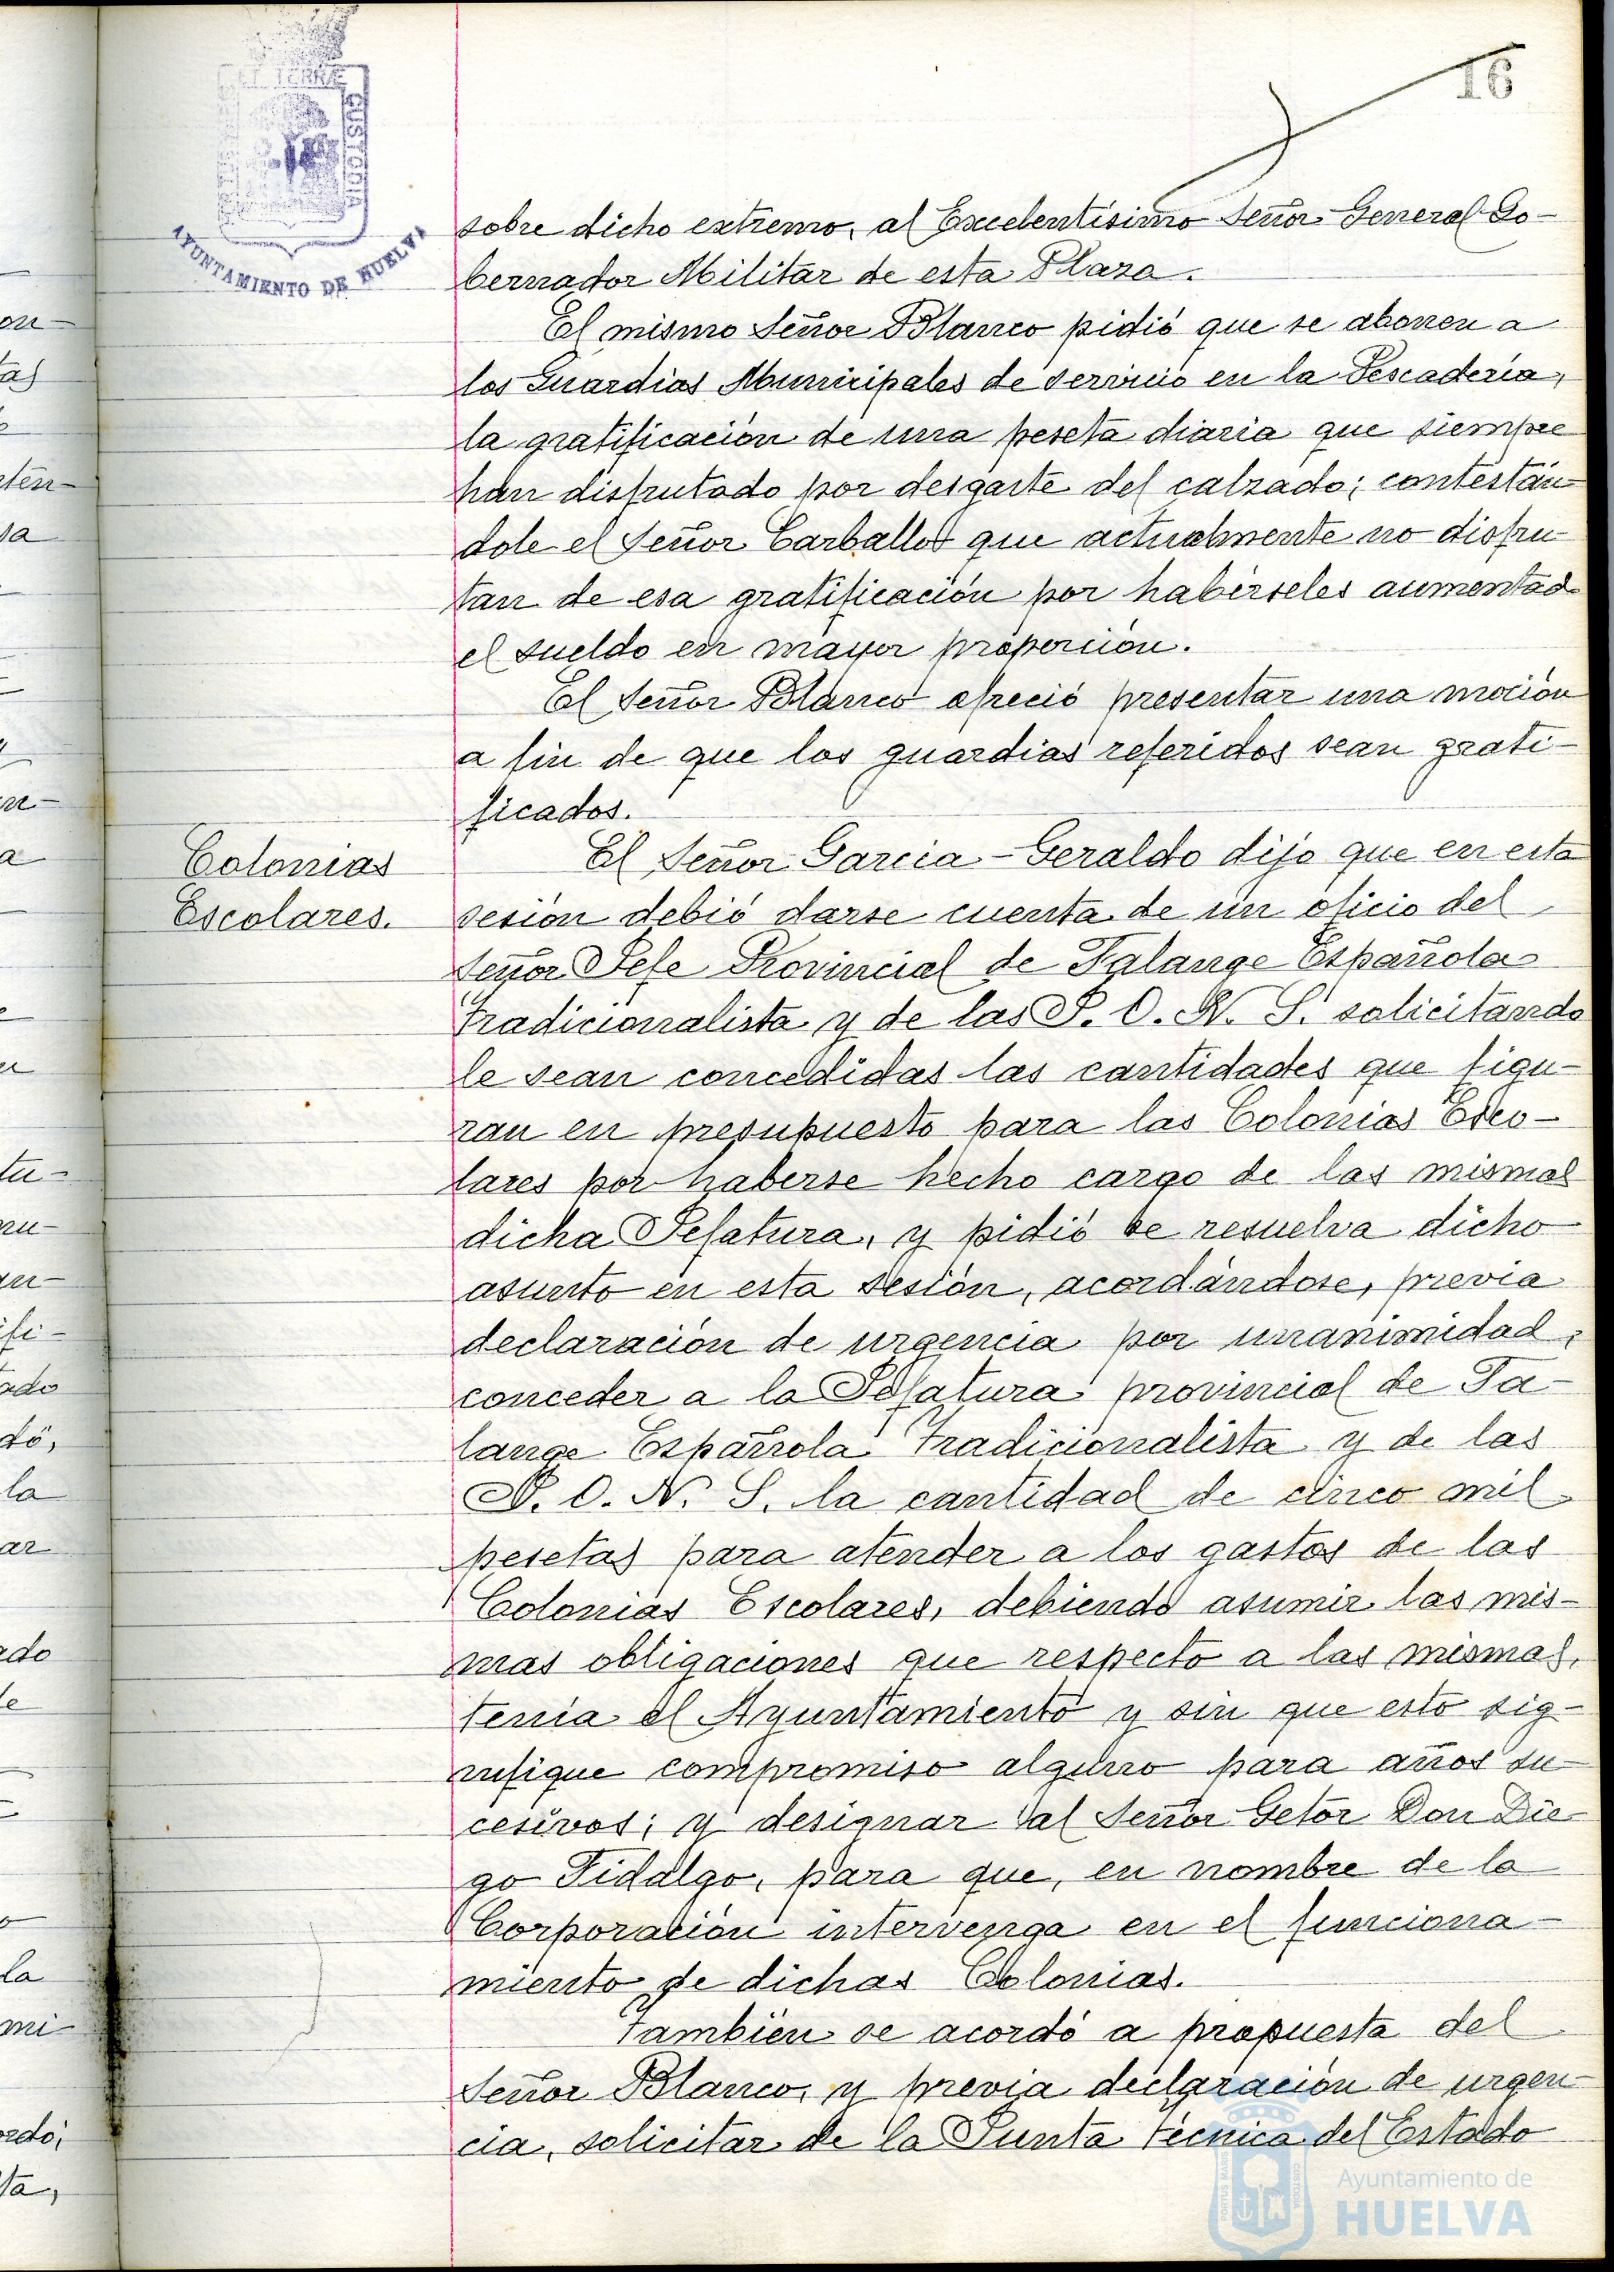 16
ET TERRÆ
CUSTODIA
AYUNTAMIENTO DE HUELVA
sobre dicho extremo, al Excelentísimo Señor General Go-
bernador Militar de esta Plaza.
El mismo Señor Blanco pidió que se abonen a
los Guardias Municipales de servicio en la Pescadería,
la gratificación de una peseta diaria que siempre
han disfrutado por desgaste del calzado; contestán-
dole el Señor Carballo que actualmente no disfru-
tan de esa gratificación por habérseles aumentado
el sueldo en mayor proporción.
El Señor Blanco ofreció presentar una moción
a fin de que los guardias referidos sean grati-
ficados.
Colonias
Escolares.
El Señor Garcia-Geraldo dijo que en esta
sesión debió darse cuenta de un oficio del
Señor Jefe Provincial de Falange Española
Tradicionalista y de las J. O. N. S. solicitando
le sean concedidas las cantidades que figu-
ran en presupuesto para las Colonias Esco-
lares por haberse hecho cargo de las mismas
dicha Jefatura, y pidió se resuelva dicho
asunto en esta sesión, acordándose, previa
declaración de urgencia por unanimidad,
conceder a la Jefatura provincial de Fa-
lange Española Tradicionalista y de las
J. O. N. S. la cantidad de cinco mil
pesetas para atender a los gastos de las
Colonias Escolares, debiendo asumir las mis-
mas obligaciones que respecto a las mismas,
tenía el Ayuntamiento y sin que esto sig-
nifique compromiso alguno para años su-
cesivos; y designar al Señor Getor Don Die-
go Fidalgo, para que, en nombre de la
Corporación intervenga en el funciona-
miento de dichas Colonias.
También se acordó a propuesta del
Señor Blanco, y previa declaración de urgen-
cia, solicitar de la Junta técnica del Estado
Ayuntamiento de
HUELVA